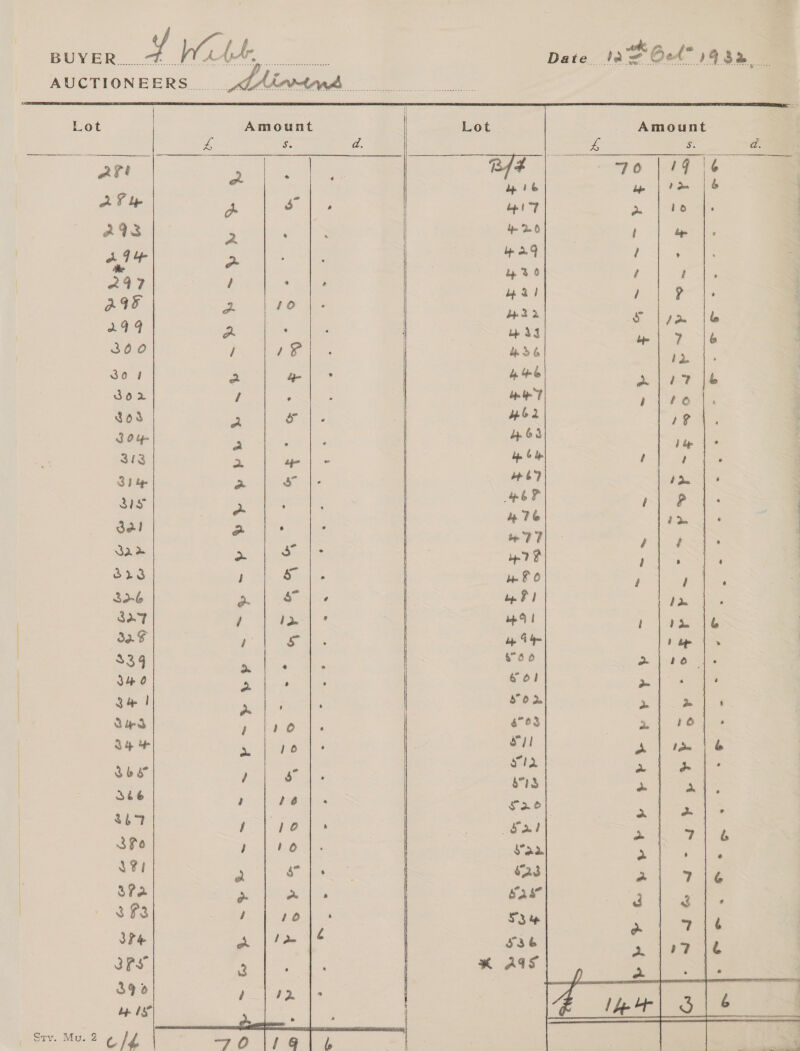 BUYER J Webb. Date 12th Oct 1932
AUCTIONEERS Stivens
Lot Amount
£ s. d.
281 2 . .
284 2 5 .
293 2 . .
294 2 . .
297 1 . .
298 2 10 .
299 2 . .
300 1 18 .
301 2 4 .
302 1 . .
303 2 5 .
304 2 . .
313 2 4 .
314 2 5 .
315 2 . .
321 2 . .
322 2 5 .
323 1 5 .
326 2 5 .
327 1 12 .
328 1 5 .
339 2 . .
340 2 . .
341 2 . .
343 1 10 .
344 2 10 .
365 1 5 .
366 1 10 .
367 1 10 .
380 1 10 .
381 2 5 .
382 2 2 .
383 1 10 .
384 2 12 6
385 3 . .
390 1 12 .
415 2 . .
Stv. Mu. 2 c/f 70 19 6
Lot Amount
£ s. d.
B/f 70 19 6
416 4 12 6
417 2 10 .
420 1 4 .
429 1 . .
430 1 1 .
431 1 8 .
432 5 12 6
433 4 7 6
436 12 .
446 2 17 6
447 1 10 .
462 18 .
463 14 .
464 1 1 .
467 12 .
468 1 8 .
476 12 .
477 1 1 .
478 1 . .
480 1 1 .
481 12 .
491 1 12 6
494 14 .
500 2 10 .
501 2 . .
502 2 2 .
503 2 10 .
511 2 12 6
512 2 2 .
513 2 2 .
520 2 2 .
521 2 7 6
522 2 . .
523 2 7 6
525 3 3 .
534 2 7 6
536 2 17 6
* 295 2 . .
£ 144 3 6